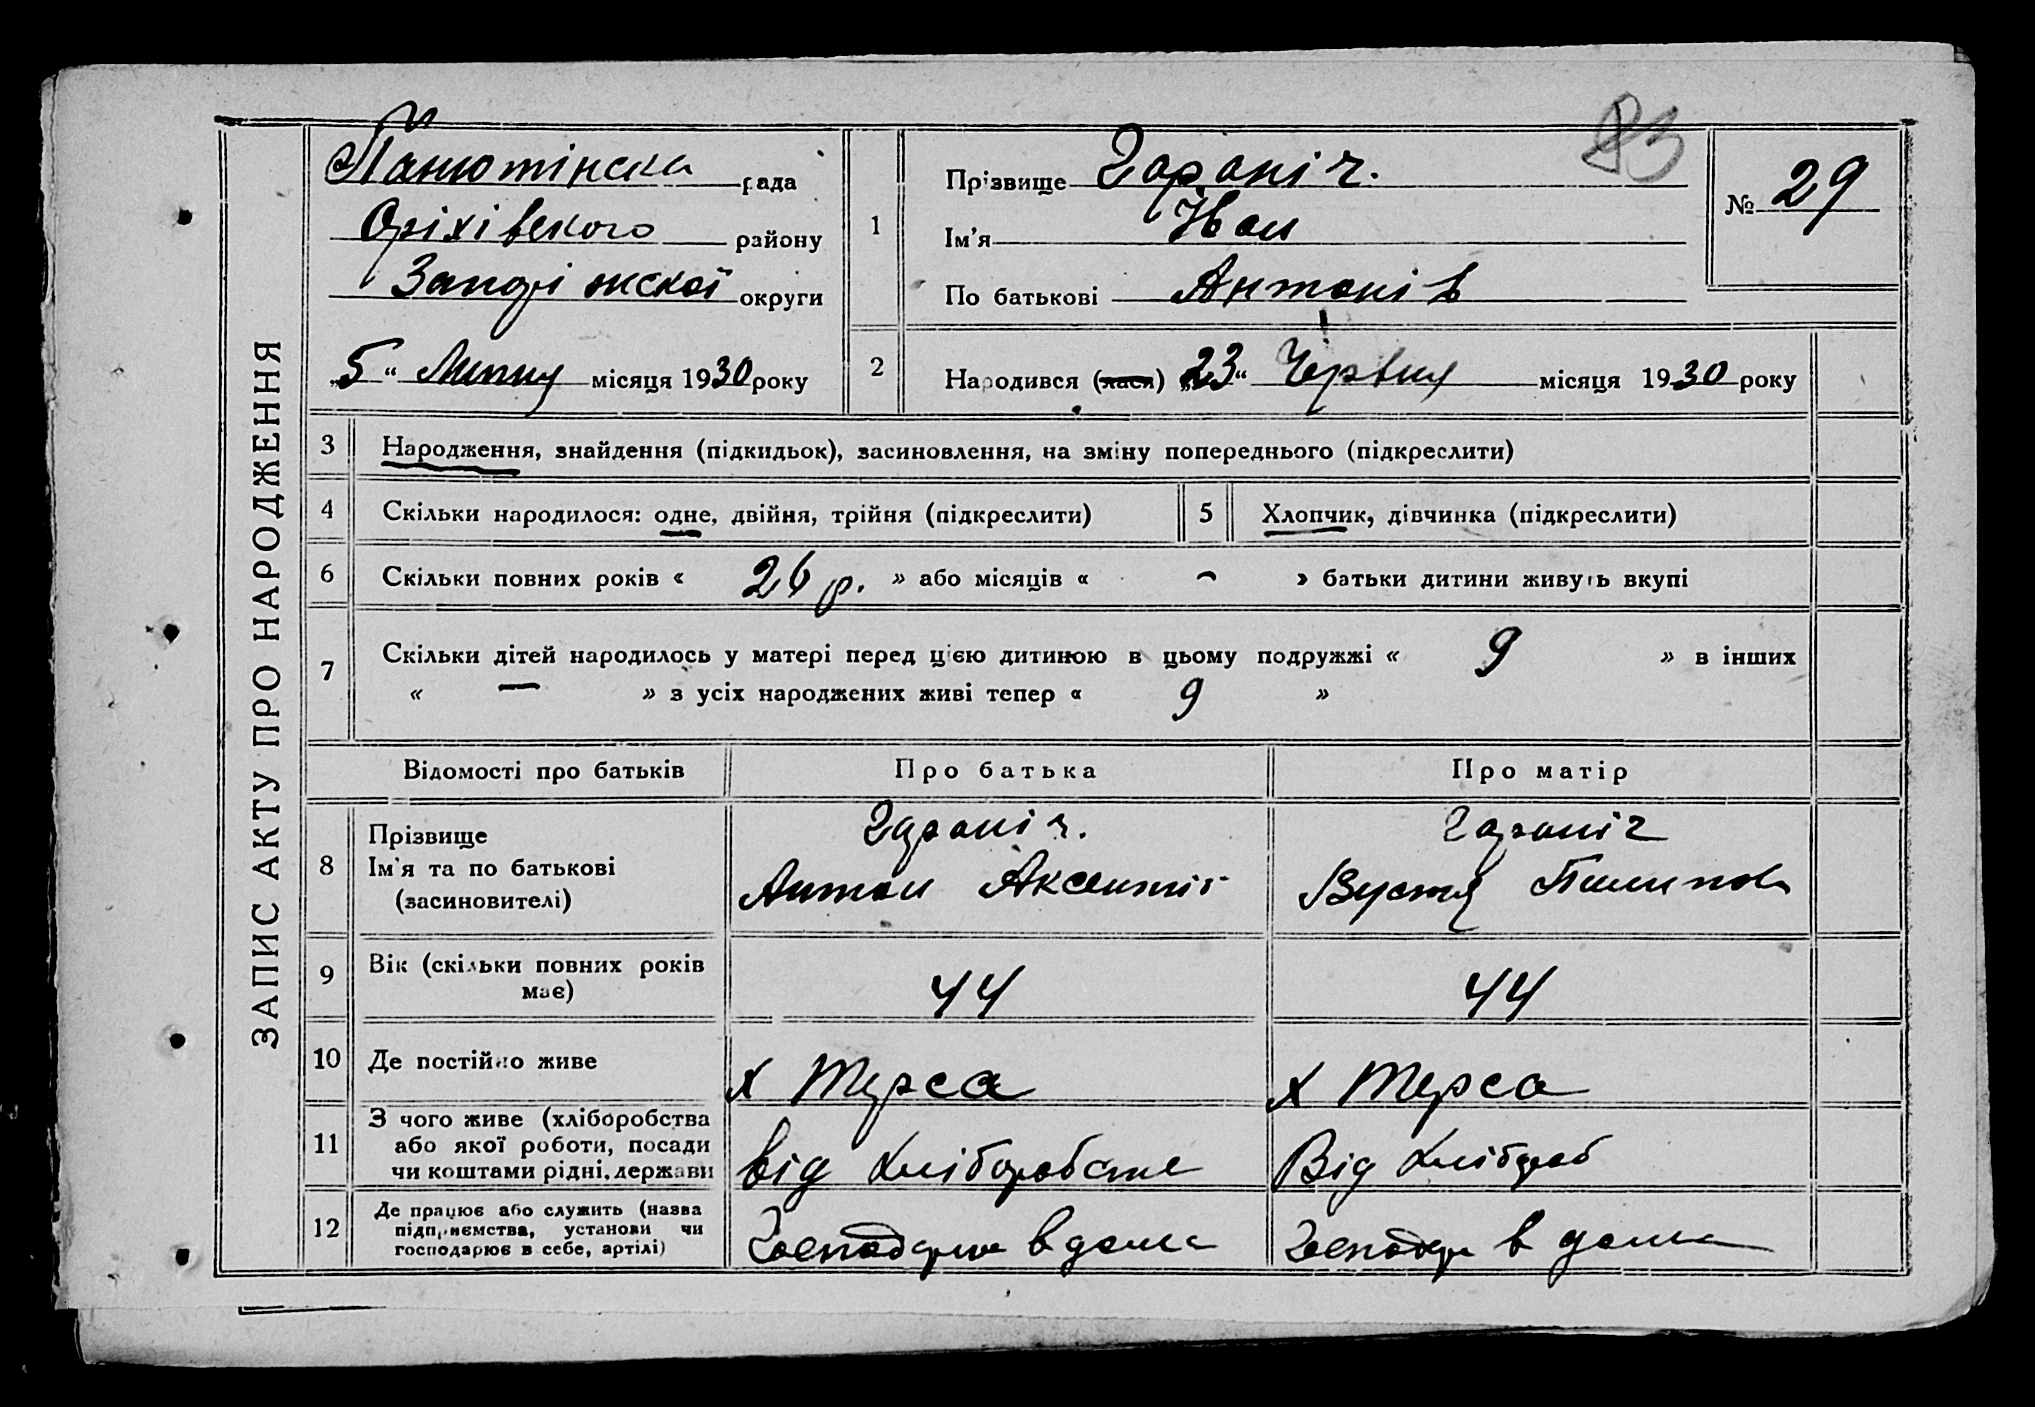 ЗАПИС АКТУ ПРО НАРОДЖЕННЯ
Панютінска рада
Оріхівского району
Запоріжскої округи
„5“ Липня місяця 1930 року
1
Прізвище Гараніч.
Ім’я Іван
По батькові Антонів
83
№ 29
2
Народився (лася) „23“ Червня місяця 1930 року
3 Народження, знайдення (підкидьок), засиновлення, на зміну попереднього (підкреслити)
4 Скільки народилося: одне, двійня, трійня (підкреслити) 5 Хлопчик, дівчинка (підкреслити)
6 Скільки повних років « 26 р. » або місяців « – » батьки дитини живуть вкупі
7 Скільки дітей народилось у матері перед цією дитиною в цьому подружжі « 9 » в інших
« — » з усіх народжених живі тепер « 9 »
Відомості про батьків Про батька Про матір
8 Прізвище
Ім’я та по батькові
(засиновителі)
Гараніч.
Антон Аксентів
Гараніч
Вустя Пилипов
9 Вік (скільки повних років
має)
44 44
10 Де постійно живе х Терса х Терса
11 З чого живе (хліборобства
або якої роботи, посади
чи коштами рідні, держави
від хліборобства
Від хлібороб
12 Де працює або служить (назва
підприємства, установи чи
господарює в себе, артілі)
Господарює в дома
Господар в дома